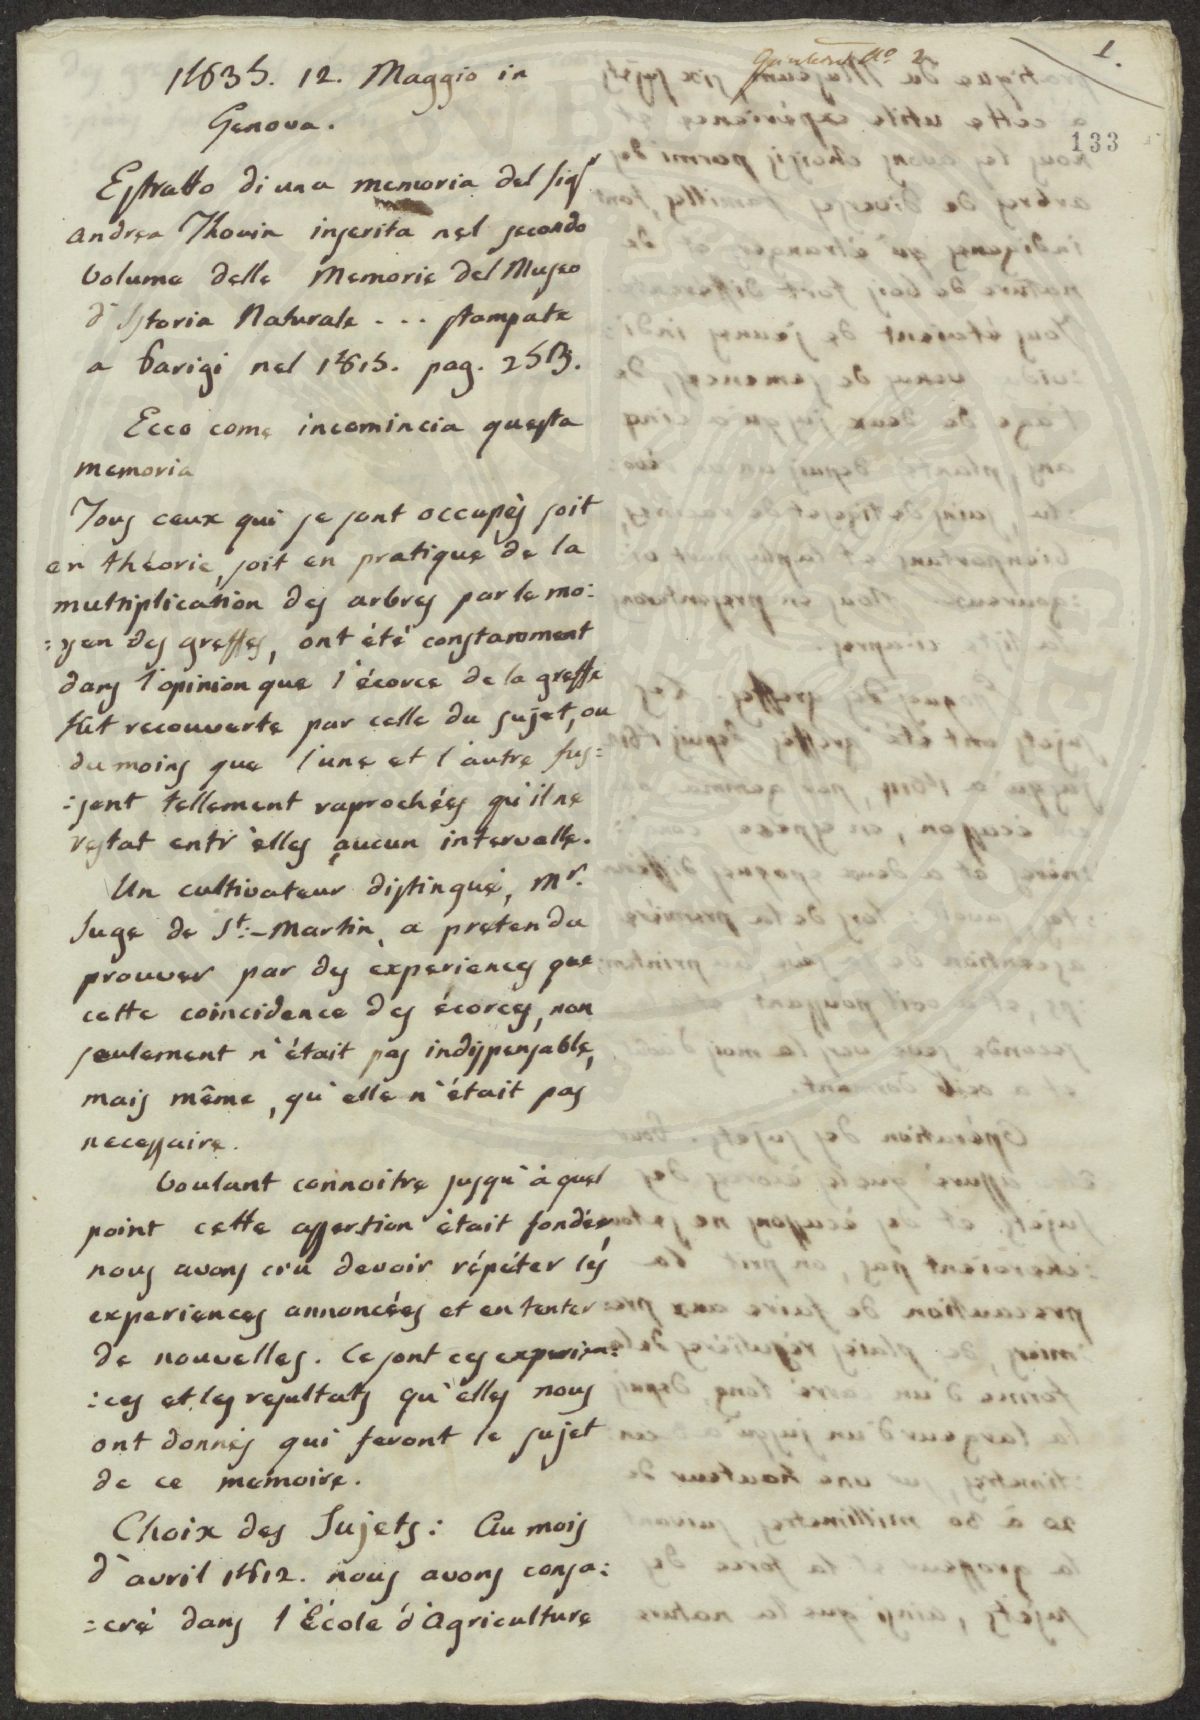 1.
Quinterno N.o 2.
133
1835. 12. Maggio in
Genova.
Estratto di una memoria del sigr
andrea Thouin inserita nel secondo
volume delle Memorie del Museo
d'Istoria Naturale - - - stampate
a Parigi nel 1815. pag.
Ecco come incomincia questa
memoria
Tous ceux qui se sont occupés soit
en théorie, soit en pratique de la
multiplication des arbres par le mo:
:yen des greffes, ont été constamment
dans l'opinion que l'écorce de la greffe
fut recouverte par celle du sujet, ou
du moins que l'une et l'autre fus:
:sent tellement raprochées qu'il ne
restat entr'elles aucun intervalle.
Un cultivateur distingué, Mr.
Juge de St.-Martin, a pretendu
prouver par des experiences que
cette coincidence des écorces, non
seulement n'était pas indispensable,
mais même, qu'elle n'était pas
necessaire.
Voulant connoitre jusqu'à quel
point cette assertion était fondée,
nous avons cru devoir répéter les
experiences annoncées et en tenter
de nouvelles. Ce sont ces experien:
:ces et les resultats qu'elles nous
ont donnés qui feront le sujet
de ce memoire.
Choix des Sujets: Au mois
d'avril 1812. nous avons consa:
:cré dans l'École d'Agriculture